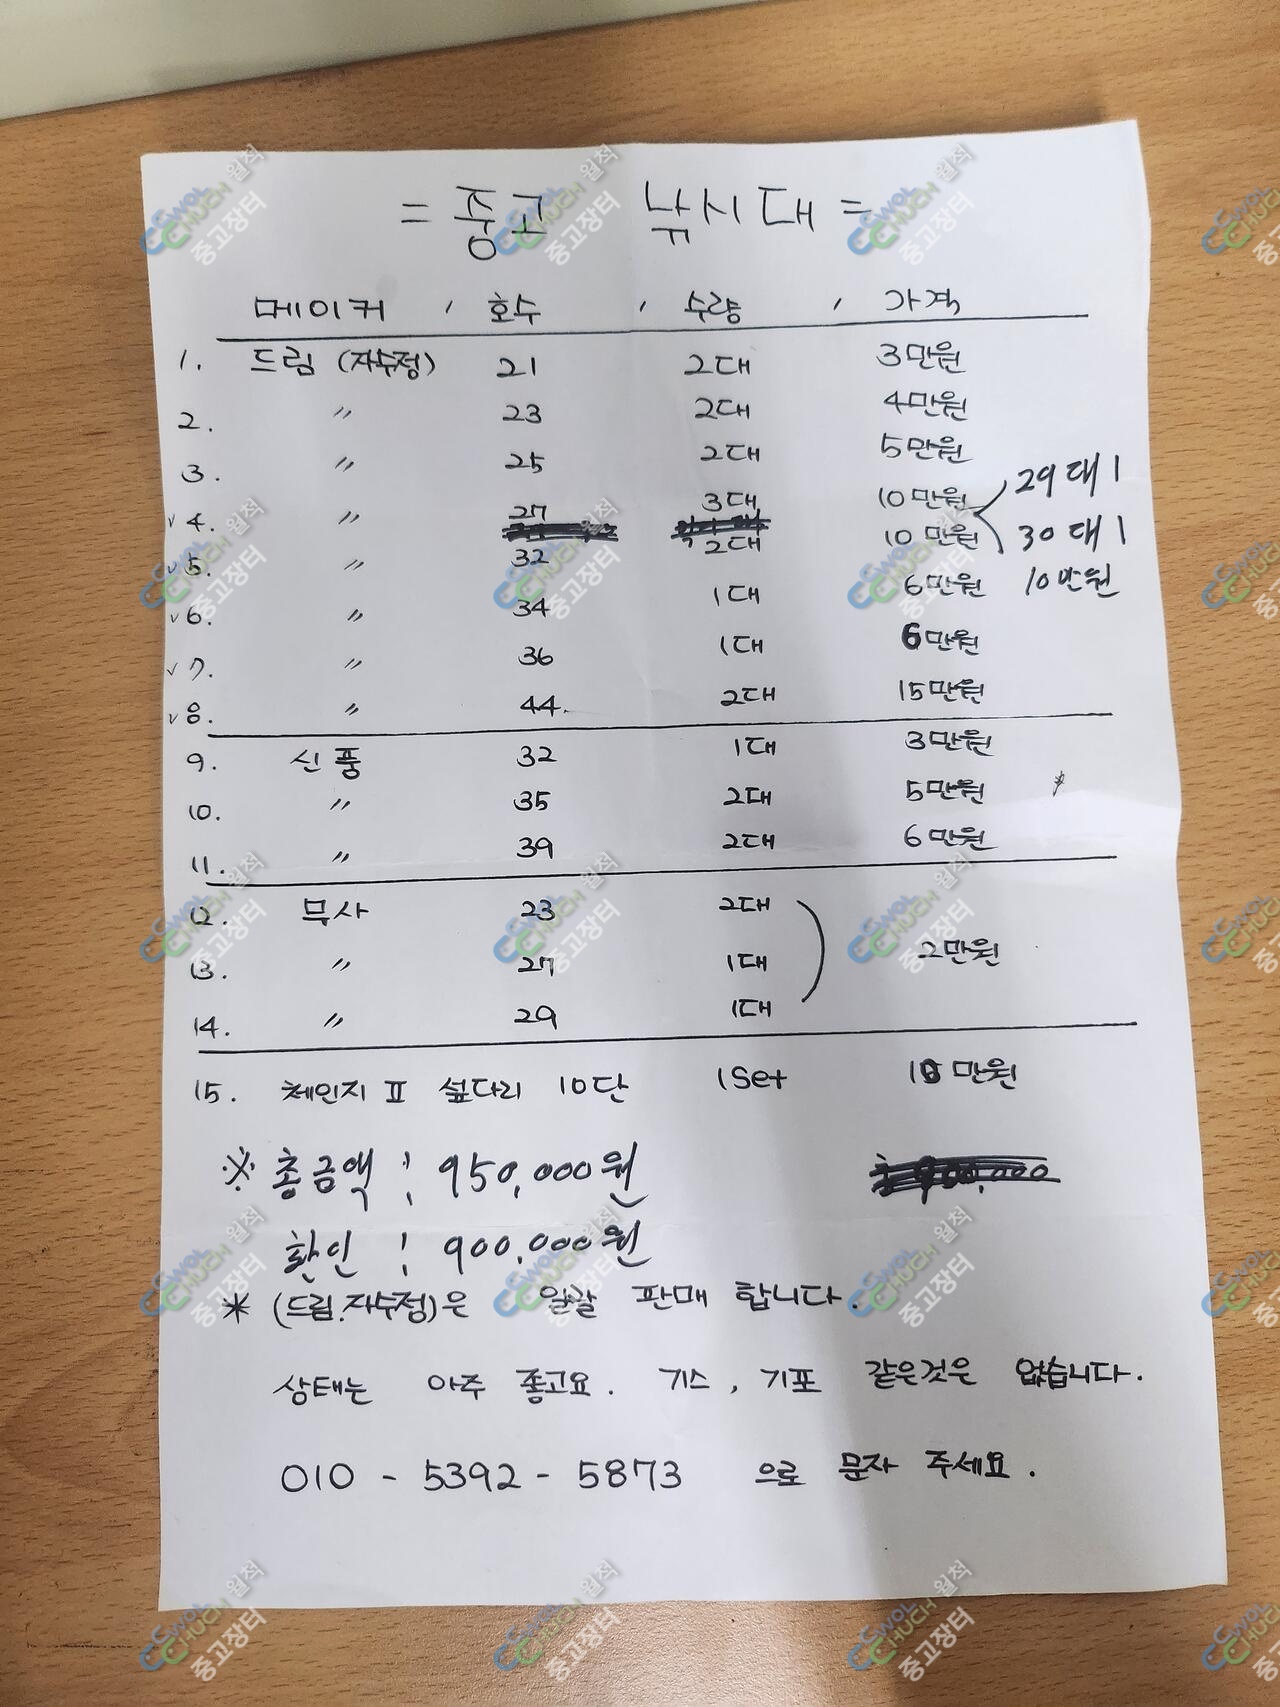 = 중고 낚시대 =
메이커 , 호수 , 수량 , 가격
1. 드림 (자수정) 21 2대 3만원
2. 〃 23 2대 4만원
3. 〃 25 2대 5만원
√ 4. 〃 27 3대 10만원 29대 1
√ 5. 〃 32 2대 10만원 30대 1
10만원
√ 6. 〃 34 1대 6만원
√ 7. 〃 36 1대 6만원
√ 8. 〃 44. 2대 15만원
9. 신풍 32 1대 3만원
10. 〃 35 2대 5만원
11. 〃 39 2대 6만원
12. 무사 23 2대
13. 〃 27 1대 2만원
14. 〃 29 1대
15. 체인지 Ⅱ 섶다리 10단 1Set 만원
※ 총금액 : 950,000원
할인 : 900,000원
* (드림.자수정)은 일괄 판매 합니다.
상태는 아주 좋고요. 기스, 기포 같은것은 없습니다.
010 - 5392 - 5873 으로 문자 주세요.
CWOL CHUCH 월척 중고장터